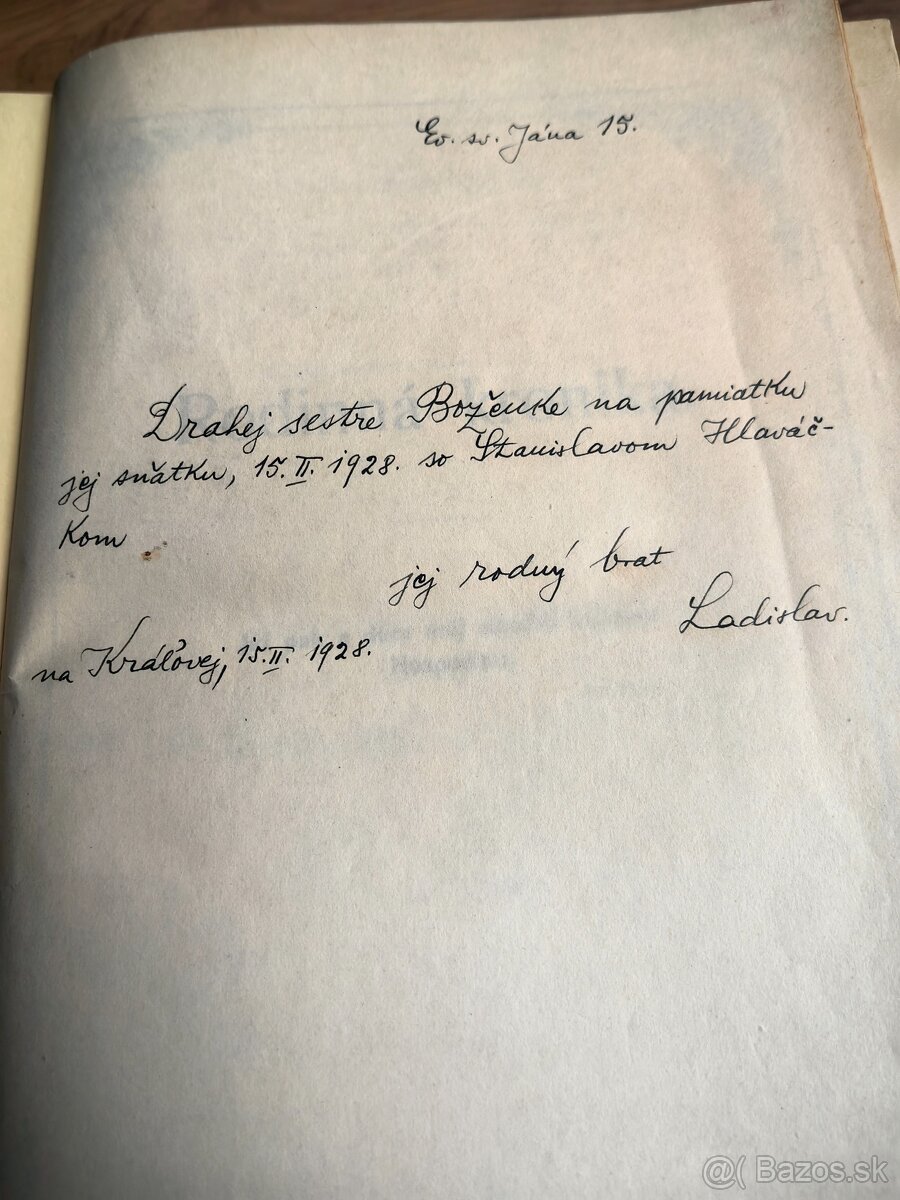 Ev. sv. Jána 15.
Drahej sestre Boženke na pamiatku
jej sňatku, 15. II. 1928. so Stanislavom Hlaváč-
kom
jej rodný brat
Ladislav.
na Kráľovej, 15. II. 1928.
@( Bazos.sk